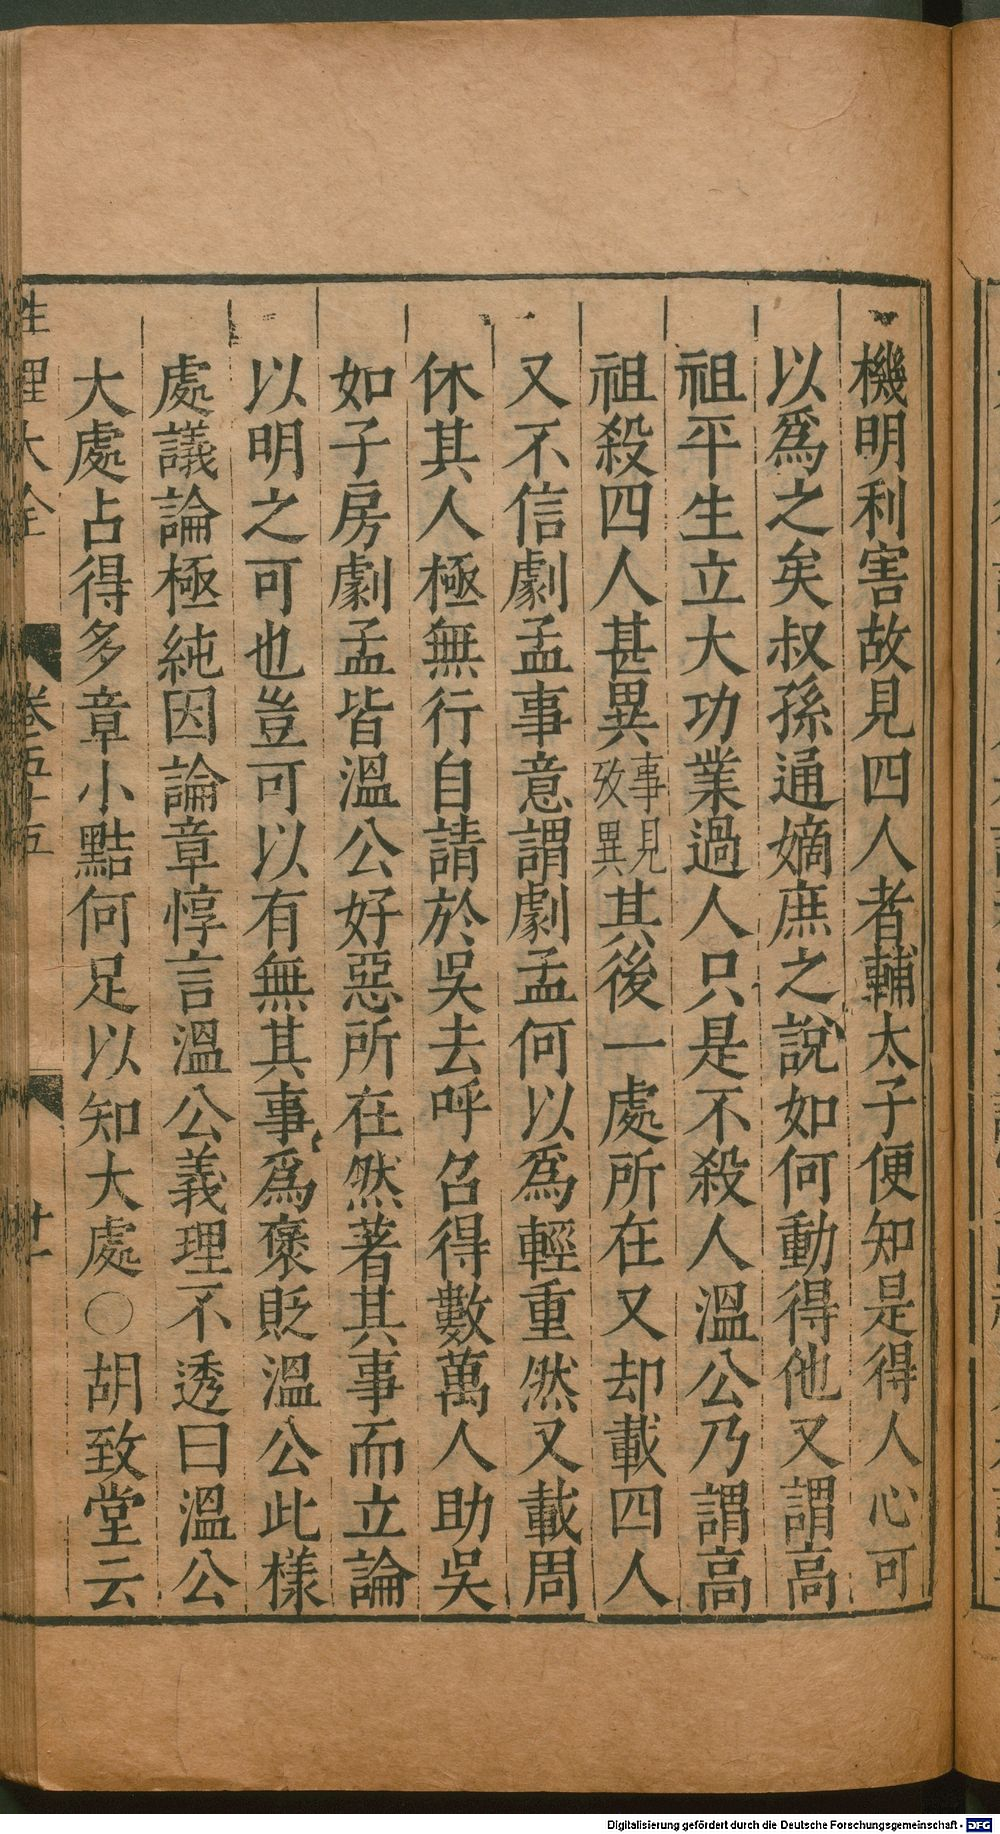 機明利害故見四人者輔太子便知是得人心可
以爲之矣叔孫通嫡庶之說如何動得他又謂高
祖平生立大功業過人只是不殺人溫公乃謂高
祖殺四人甚異事見攷異其後一處所在又却載四人
又不信劇孟事意謂劇孟何以爲輕重然又載周
休其人極無行自請於吳去呼召得數萬人助吳
如子房劇孟皆溫公好惡所在然著其事而立論
以明之可也豈可以有無其事爲褒貶溫公此樣
處議論極純因論章惇言溫公義理不透曰溫公
大處占得多章小黠何足以知大處〇胡致堂云
性理大全 卷五十五 廿一
Digitalisierung gefördert durch die Deutsche Forschungsgemeinschaft - DFG